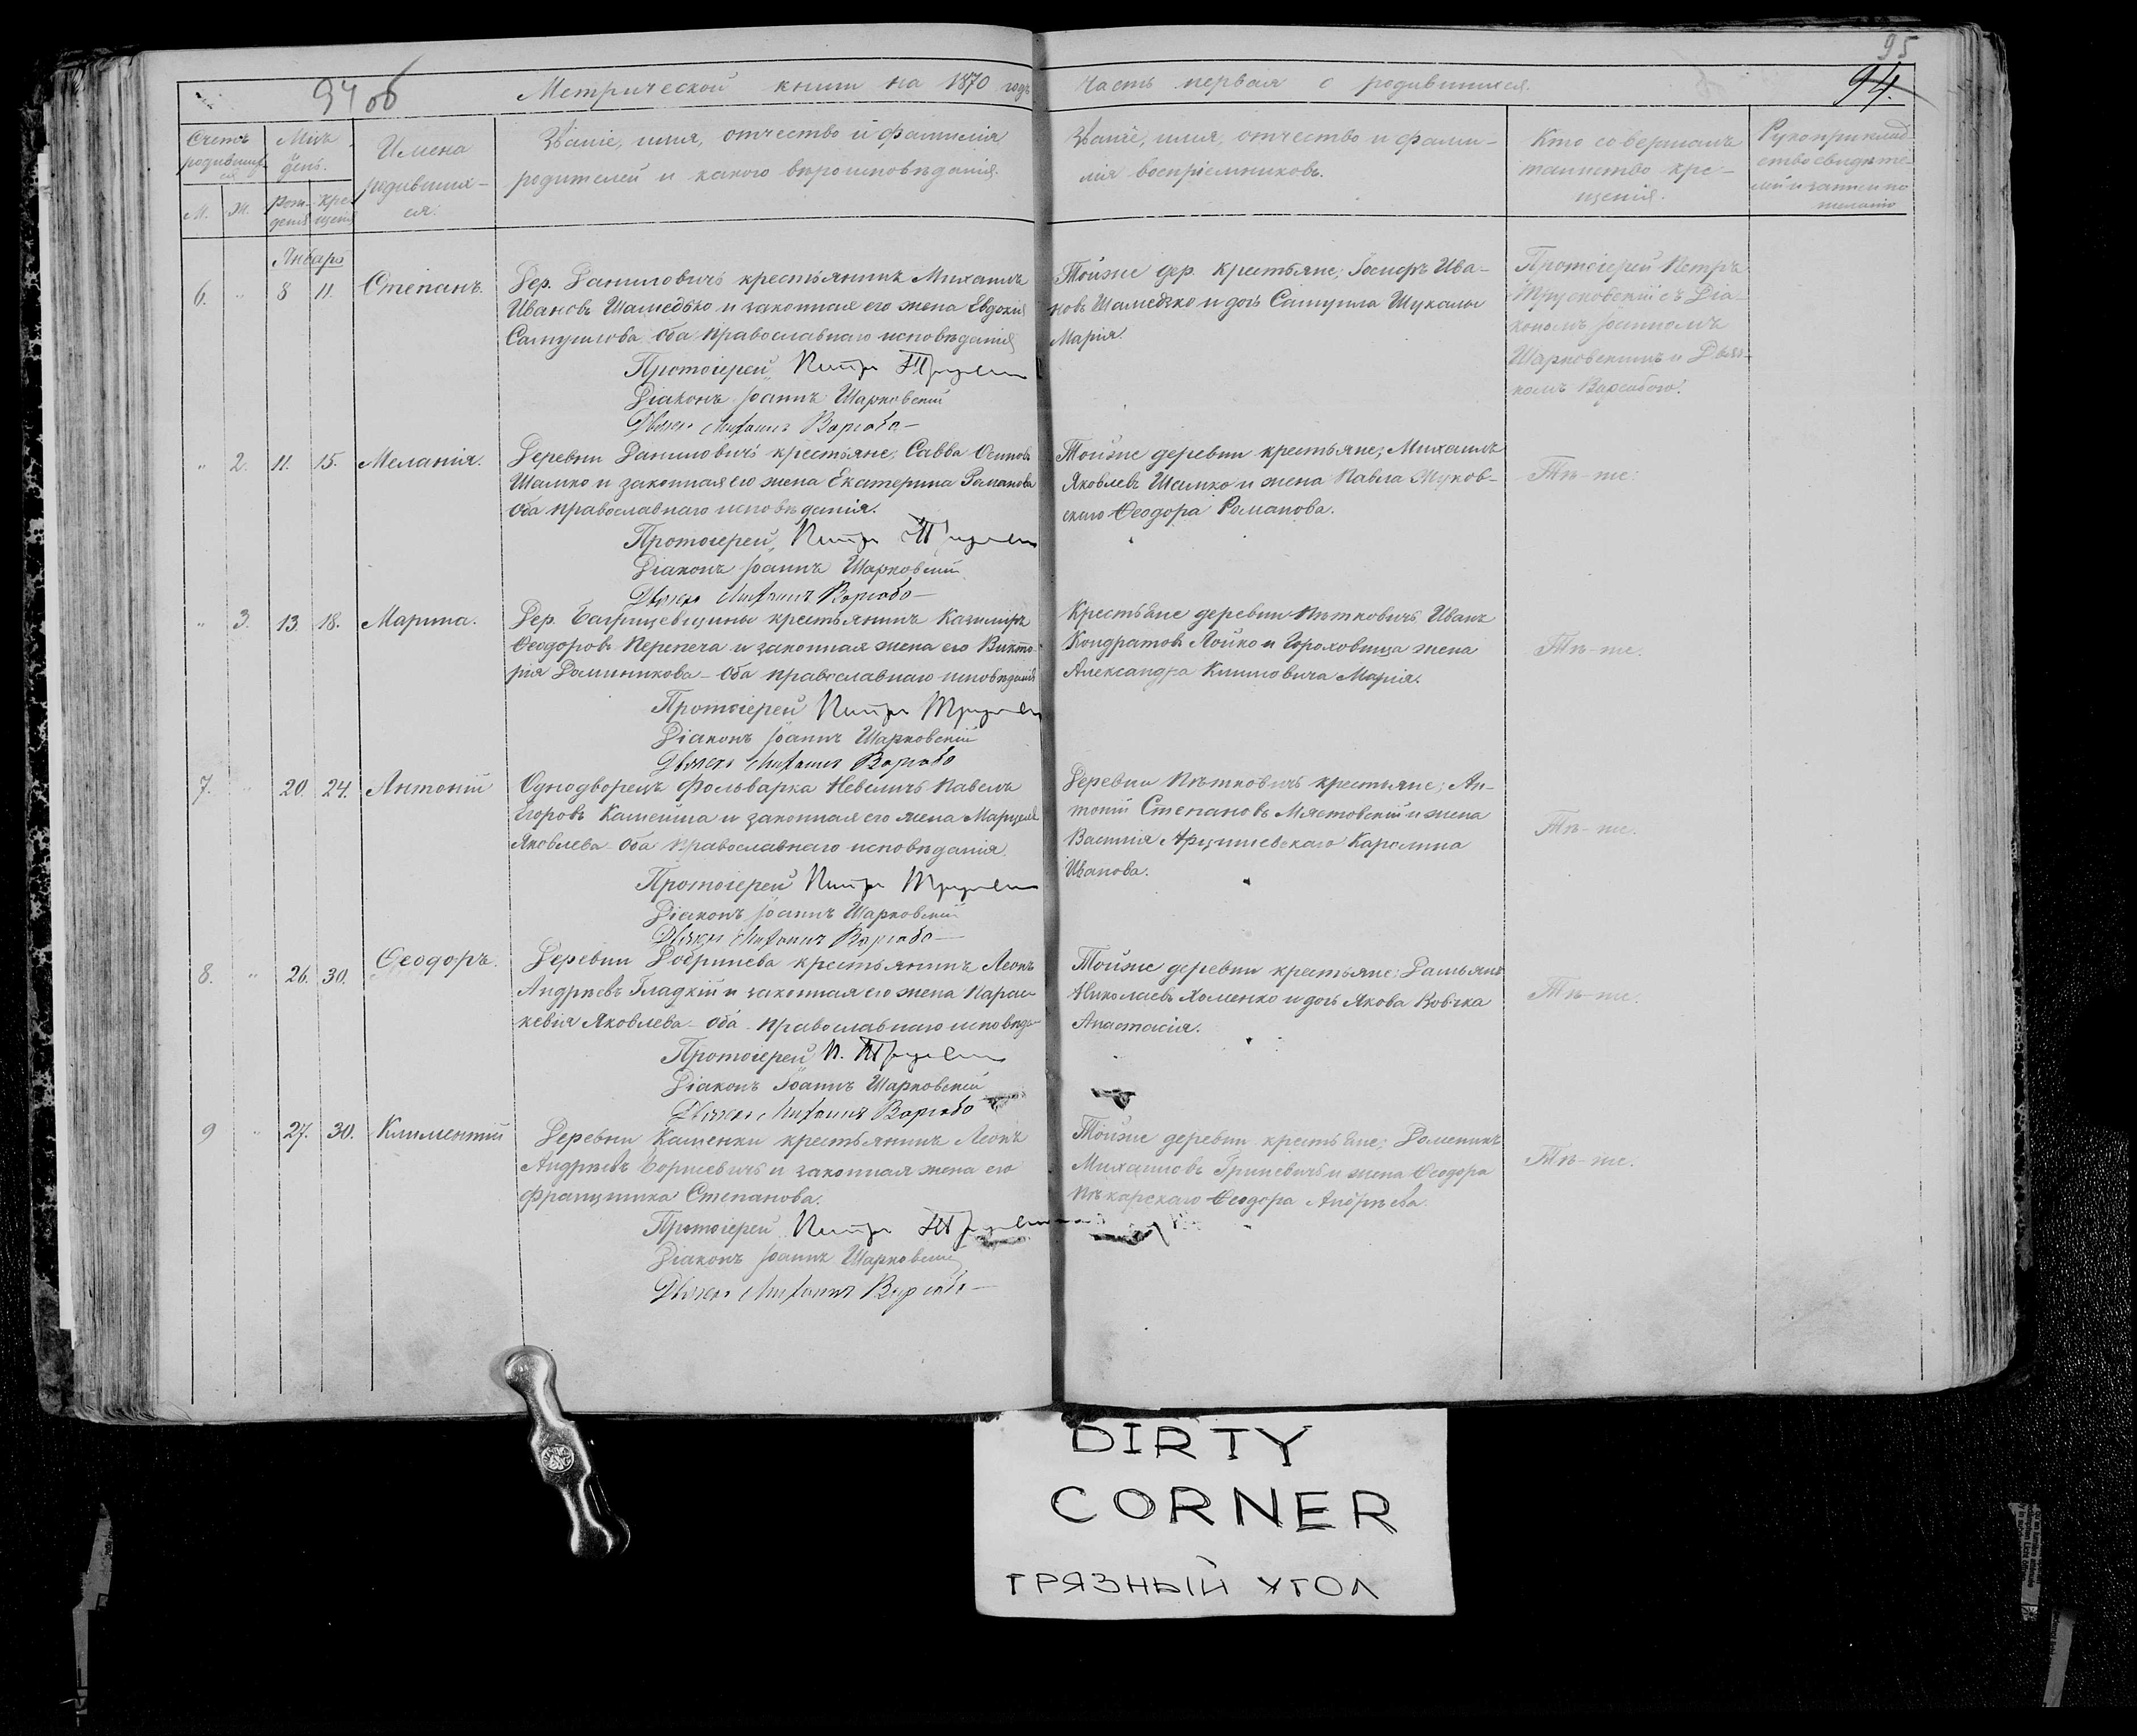 94 об
Метрической книги на 1870 годъ
Часть первая о родившихся.
95
94.
Счетъ родившихся
М. Ж.
Мцъ и день.
Рождения Крещения
Имена родившихся.
Званіе, имя, отчество и фамилія
родителей и какого вѣроисповѣданія.
Званіе, имя, отчество и фами-
лія воспріемниковъ.
Кто совершалъ
таинство кре-
щенія.
Рукоприклад-
ство свидѣте-
лей и записи по
желанію
Январь
6. " 8 11. Стефанъ.
Дер. Даниловичъ крестьянинъ Михаилъ
Ивановъ Шамедько и законная его жена Евдокія
Самуилова оба православнаго исповѣданія
Протоіерей Петръ
Діаконъ Іоаннъ Шарковскій
Дьячекъ Михаилъ
Тойже дер. крестьяне; Іосифъ Ива-
новъ Шамедько и дочь Самуила Шукалы
Марія.
Протоіерей Петръ
съ Діа-
кономъ Іоанномъ
Шарковскимъ и Дьяч-
комъ
" 2. 11. 15. Меланія.
Деревни Даниловичъ крестьяне; Савва Осиповъ
Шамко и законная его жена Екатерина Романова
оба православнаго исповѣданія.
Протоіерей Петръ
Діаконъ Іоаннъ Шарковскій
Дьячекъ Михаилъ
Тойже деревни крестьяне; Михаилъ
Яковлевъ Шамко и жена Павла Жуков-
скаго Ѳеодора Романова.
Тѣ-же.
" 3. 13. 18. Марина.
Дер. крестьянинъ Казиміръ
Ѳеодоровъ Перепеча и законная жена его Викто-
рія Доминикова - оба православнаго исповѣданія
Протоіерей Петръ
Діаконъ Іоаннъ Шарковскій
Дьячекъ Михаилъ
Крестьяне деревни Пѣтковичъ Иванъ
Кондратовъ Лойко и Гороховища жена
Александра Климовича Марія.
Тѣ-же.
7. " 20. 24. Антоній
Однодворецъ фольварка Невеличъ Павелъ
Егоровъ и законная его жена Марцелла
Яковлева оба православнаго исповѣданія.
Протоіерей Петръ
Діаконъ Іоаннъ Шарковскій
Дьячекъ Михаилъ
Деревни Пѣтковичъ крестьяне; Ан-
тоній Степановъ Мястовскій и жена
Василія Каролина
Иванова.
Тѣ-же.
8. " 26. 30. Ѳеодоръ.
Деревни Добринева крестьянинъ Леонъ
Андреевъ Гладкій и законная его жена Парас-
кевія Яковлева - оба православнаго исповѣда-
Протоіерей П.
Діаконъ Іоаннъ Шарковскій
Дьячекъ Михаилъ
Тойже деревни крестьяне: Дамьянъ
Николаевъ Хоменко и дочь Якова Вовчка
Анастасія.
Тѣ-же.
9 " 27. 30. Климентій
Деревни Каменки крестьянинъ Леонъ
Андреевъ Борисевичъ и законная жена его
Францишка Степанова.
Протоіерей Петръ
Діаконъ Іоаннъ Шарковскій
Дьячекъ Михаилъ
Тойже деревни крестьяне; Доминикъ
Михайловъ Гриневичъ и жена Ѳеодора
Пѣкарскаго Ѳеодора Андреева.
Тѣ-же.
DIRTY
CORNER
ГРЯЗНЫЙ УГОЛ